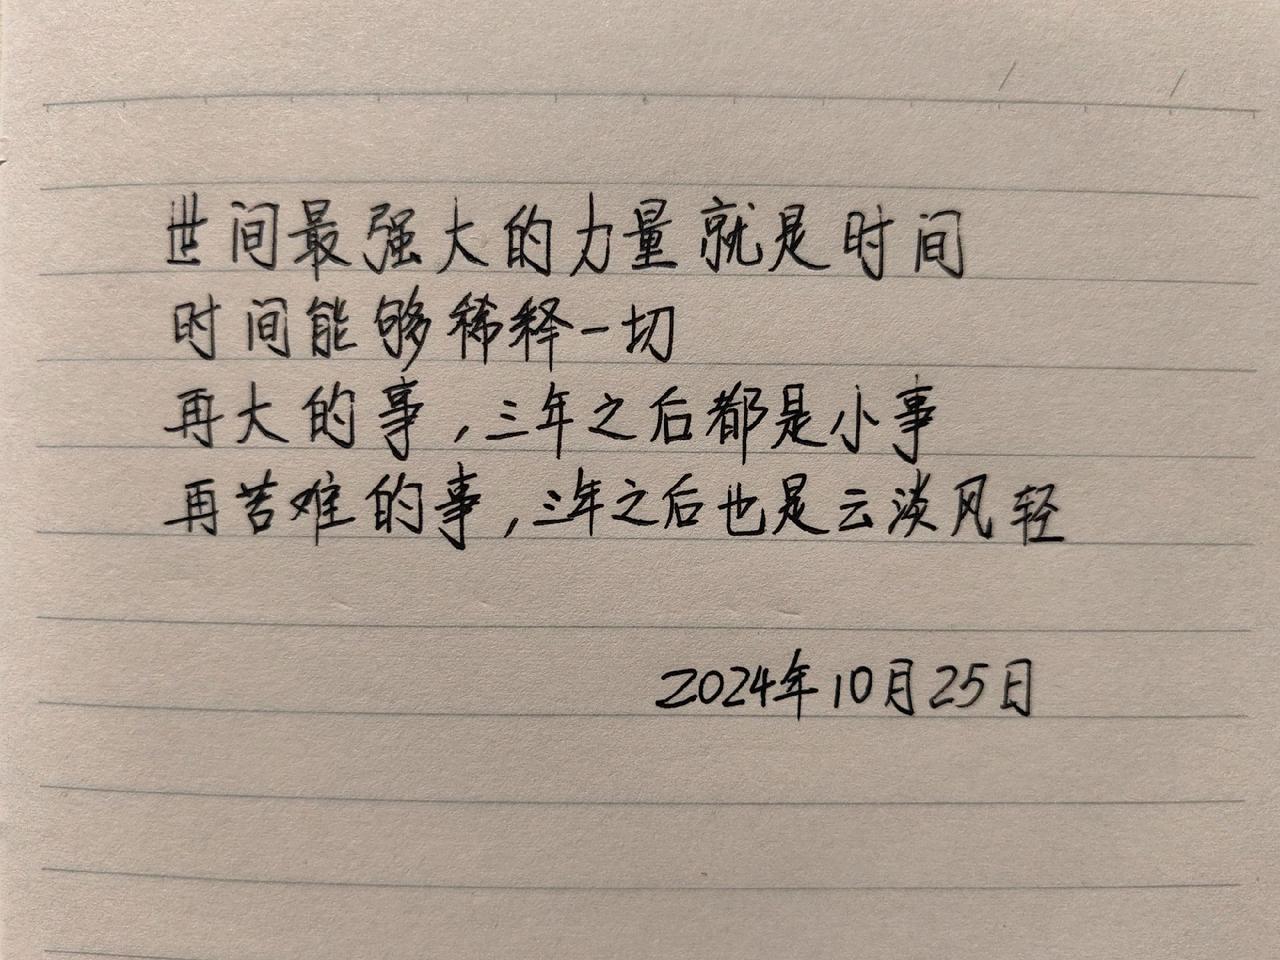 世间最强大的力量就是时间
时间能够稀释一切
再大的事,三年之后都是小事
再苦难的事,三年之后也是云淡风轻
2024年10月25日